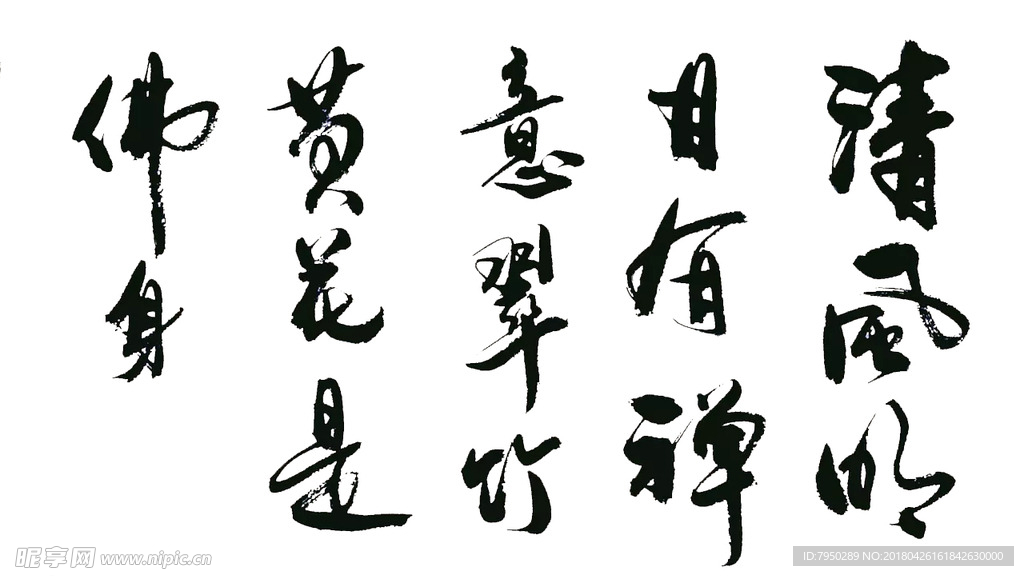 清风明
月有禅
意翠竹
黄花是
佛身
昵享网 www.nipic.cn
ID:7950289 NO:20180426161842630000